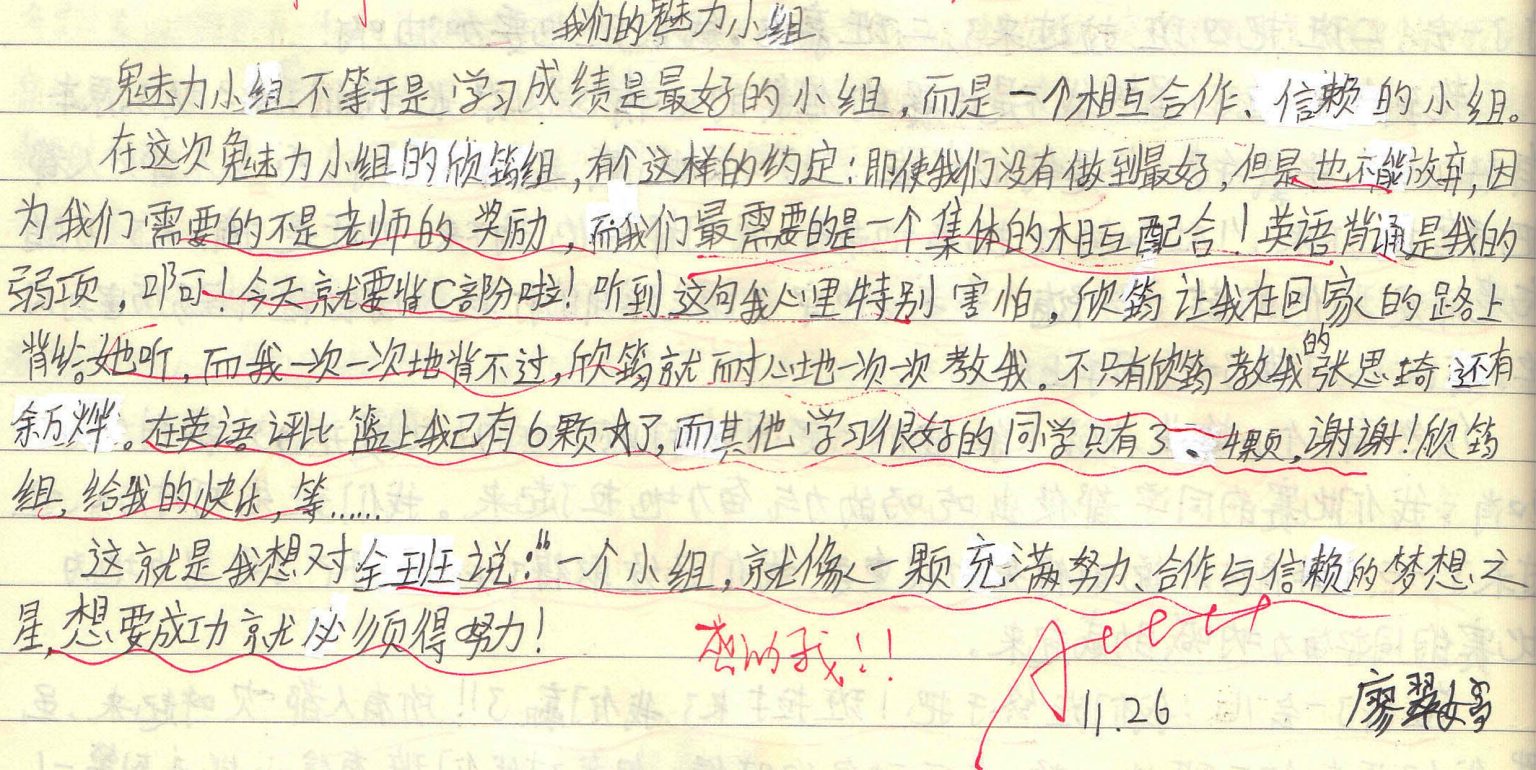 我们的魅力小组
魅力小组不等于是学习成绩是最好的小组，而是一个相互合作、信赖的小组。
在这次魅力小组的欣筠组，有个这样的约定：即使我们没有做到最好，但是也不能放弃，因
为我们需要的不是老师的奖励，而我们最需要的是一个集体的相互配合！英语背诵是我的
弱项，啊！今天就要背C部分啦！听到这句我心里特别害怕，欣筠让我在回家的路上
背给她听，而我一次一次地背不过，欣筠就耐心地一次一次教我。不只有欣筠教我的张思琦还有
余万烨。在英语评比篮上我已有6颗★了，而其他学习很好的同学只有3、4颗，谢谢！欣筠
组，给我的快乐，等……
这就是我想对全班说：“一个小组，就像一颗充满努力、合作与信赖的梦想之
星，想要成功就必须得努力！
感动我！！
A++++
11.26
廖翠婷